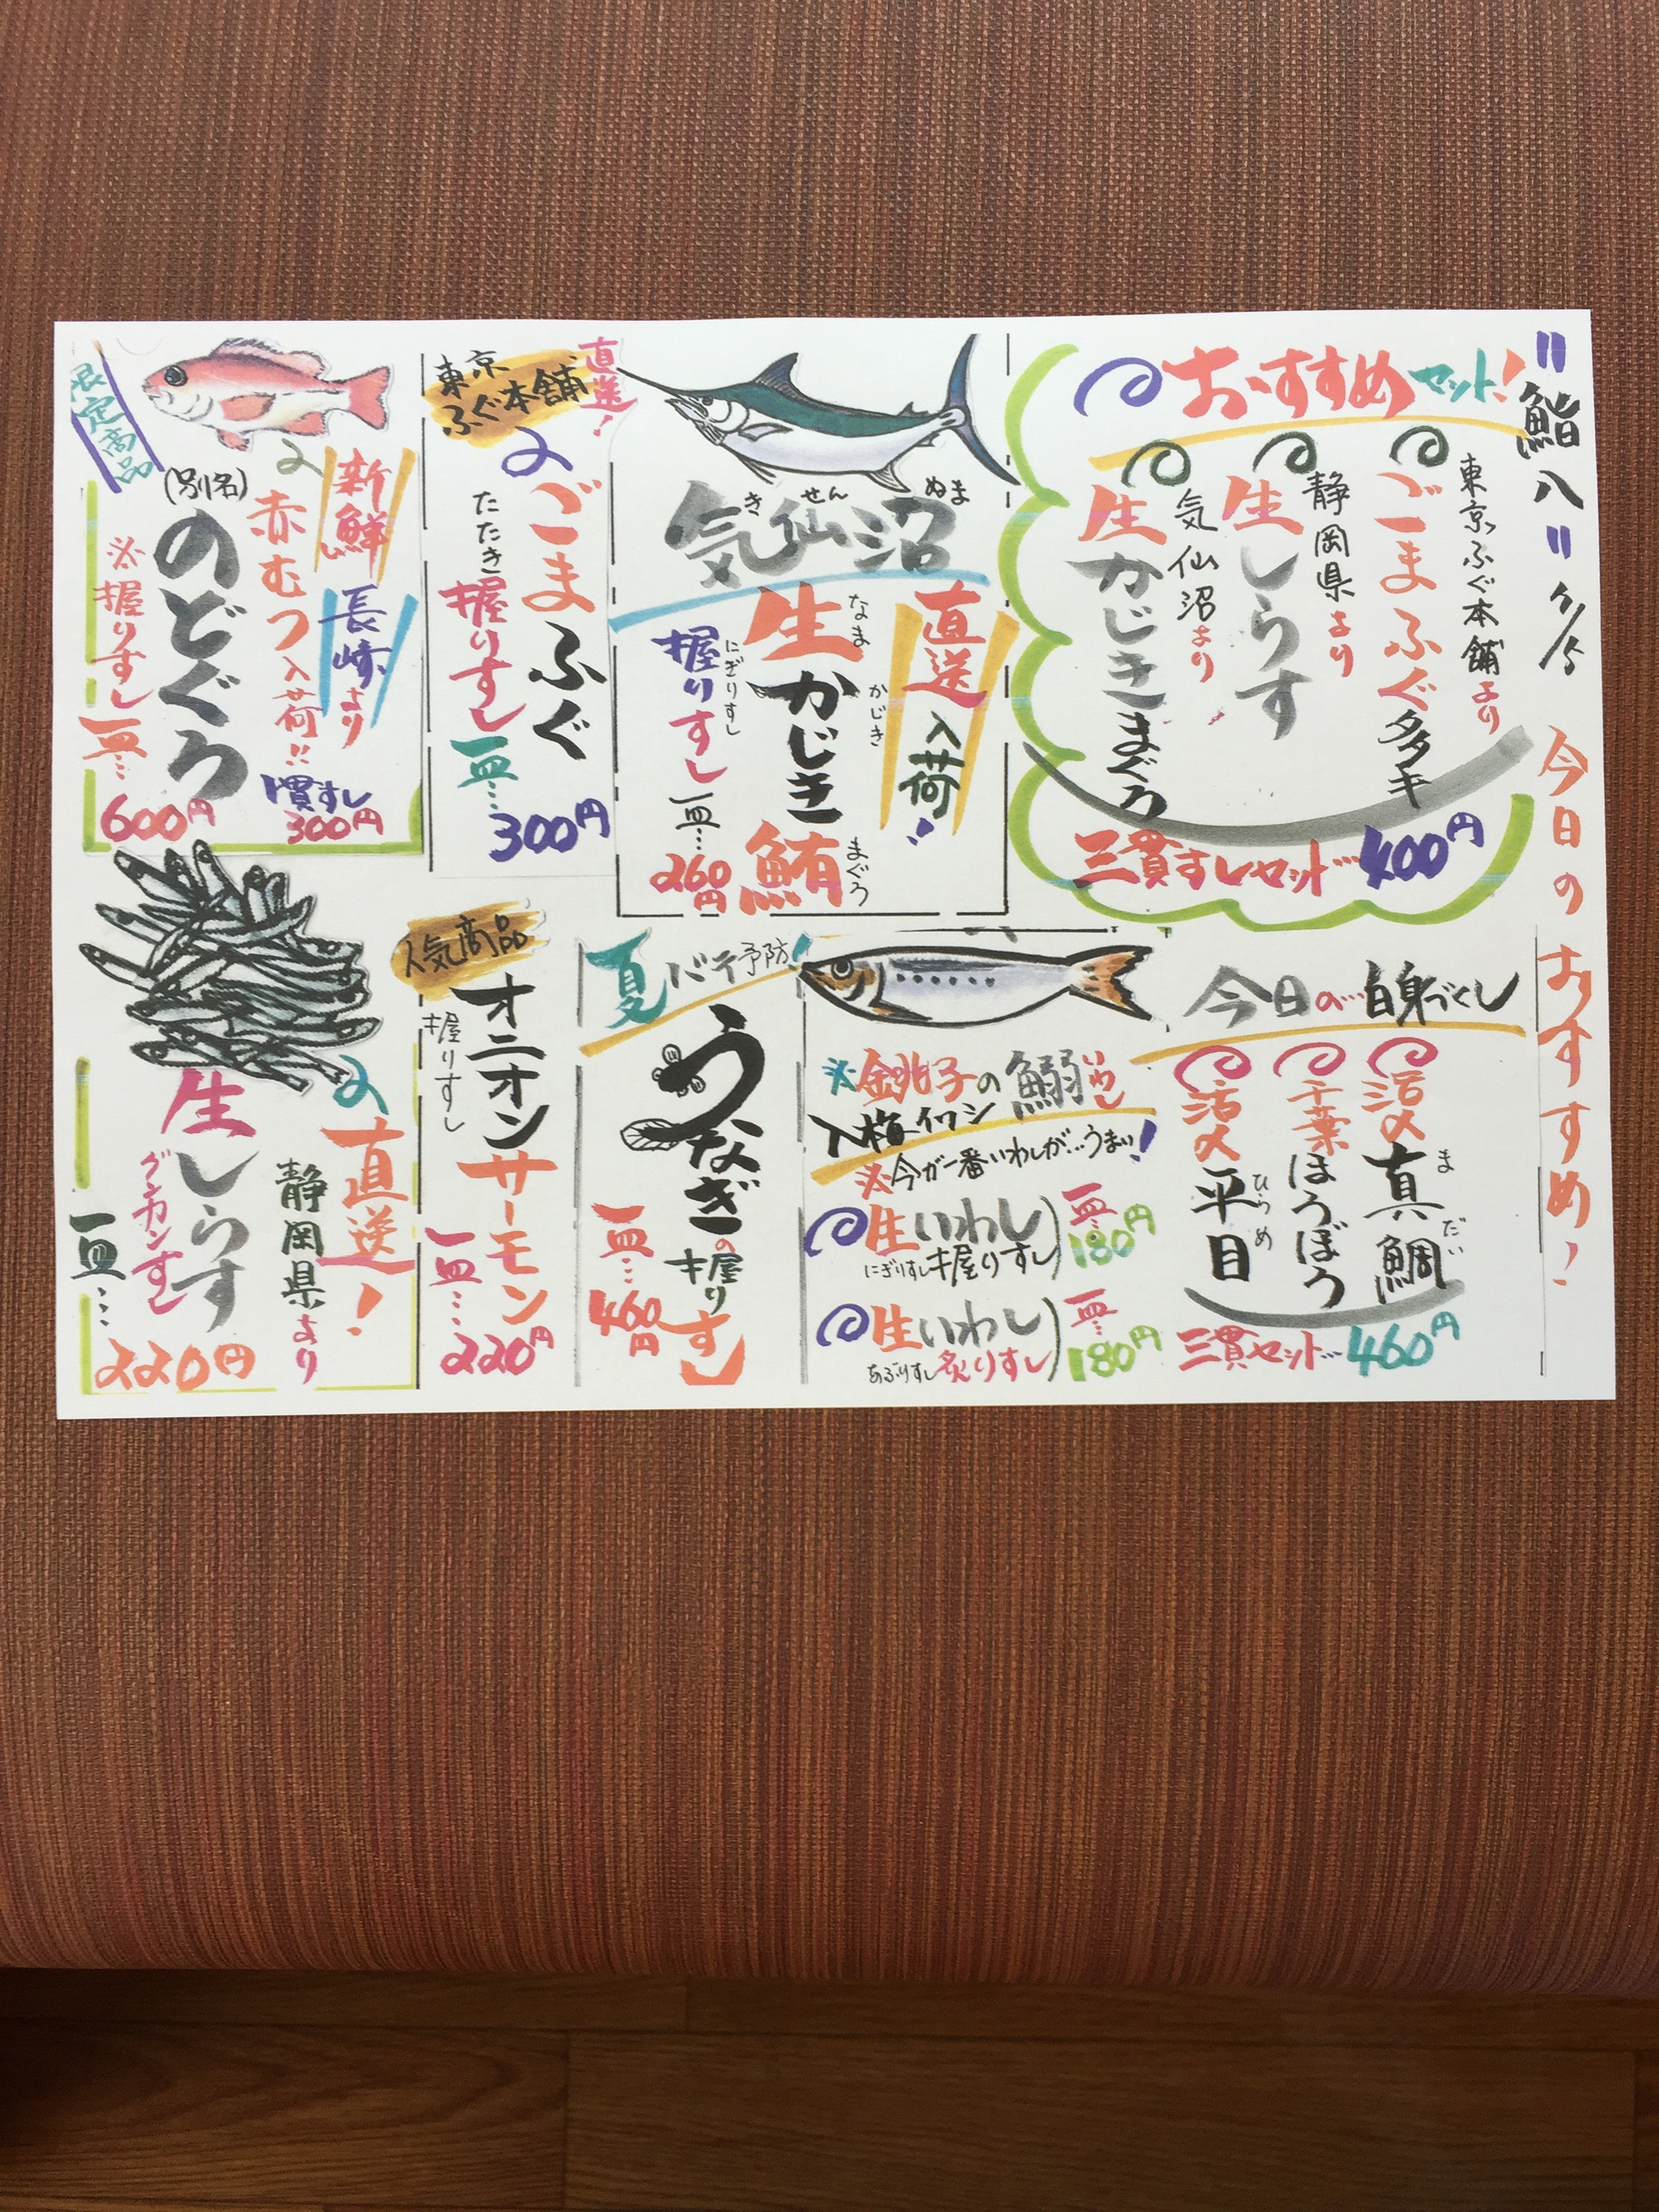 "鮨八" 7/5 今日のおすすめ!
おすすめセット!
東京ふぐ本舗より
ごまふぐタタキ
静岡県より
生しらす
気仙沼より
生かじきまぐろ
三貫すしセット…400円
気仙沼
きせんぬま
直送入荷!
生かじき鮪
なま かじき まぐろ
握りすし一皿…260円
にぎりすし
直送!
東京
ふぐ本舗
ごまふぐ
たたき
握りすし
一皿…300円
限定商品
新鮮
長崎より
赤むつ入荷!!
(別名)
のどぐろ
1貫すし
300円
※握りすし一皿…
600円
今日の…白身づくし
活〆真鯛
まだい
千葉ほうぼう
活〆平目
ひらめ
三貫セット…460円
※銚子の鰯
いわし
入梅イワシ
※今が一番いわしが…うまい!
生いわし
にぎりすし握りすし
一皿…180円
生いわし
あぶりすし炙りすし
一皿…180円
夏バテ予防!
うなぎの握りすし
一皿…460円
人気商品
オニオンサーモン
握りすし
一皿…220円
直送!
静岡県より
生しらす
グンカンすし
一皿…
220円